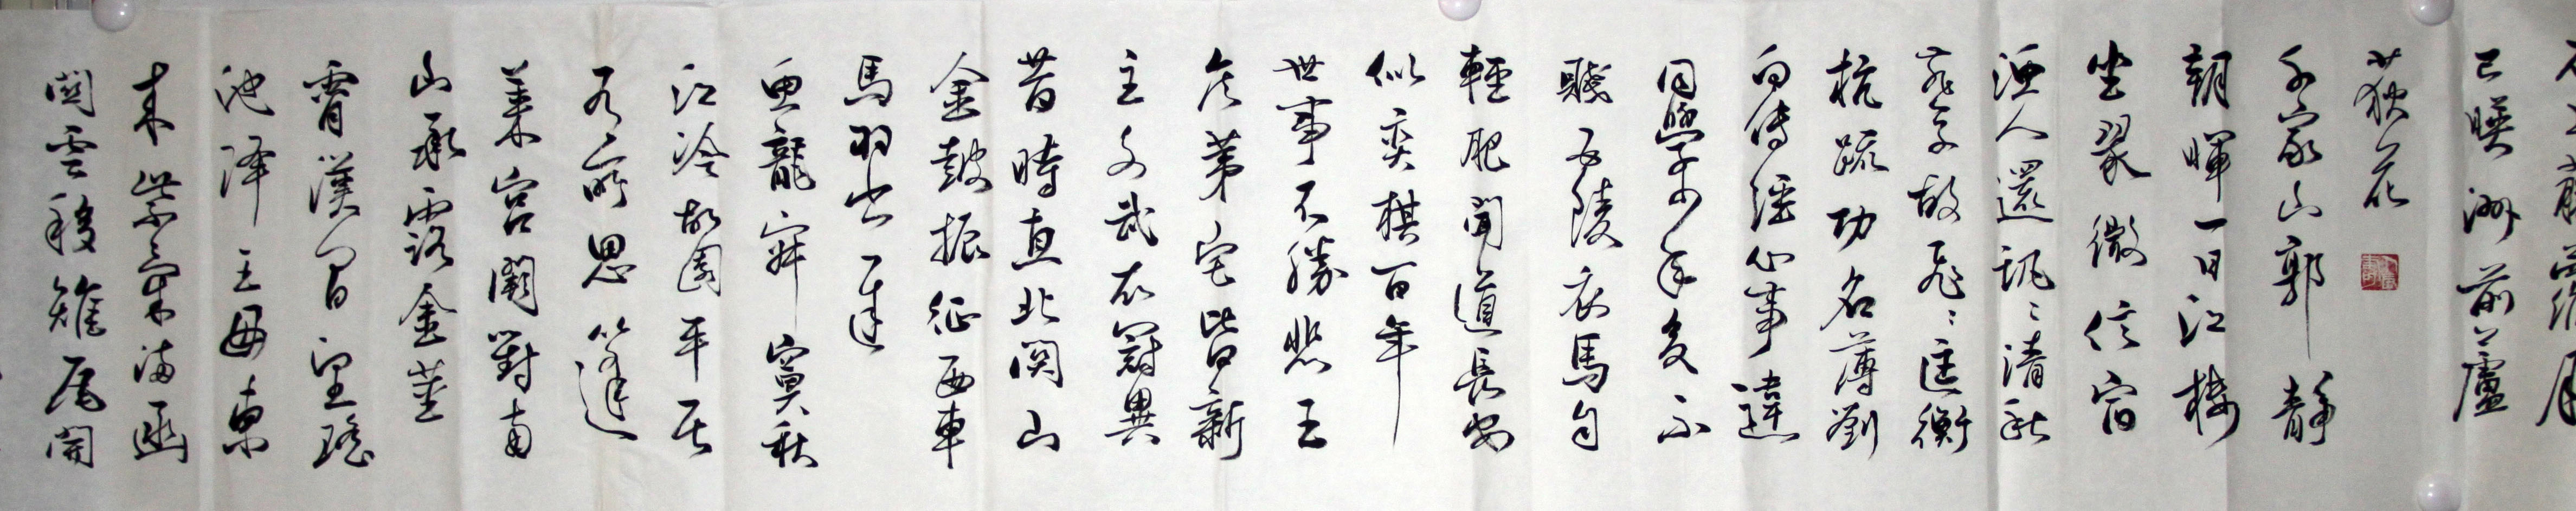 已暎洲前蘆
荻花
千家山郭靜
朝暉一日江樓
坐翠微信宿
漁人還汎〻清秋
燕子故飛〻匡衡
抗疏功名薄劉
向傳經心事違
同學少年多不
賤五陵衣馬自
輕肥聞道長安
似奕棋百年
世事不勝悲王
侯第宅皆新
主文武衣冠異
昔時直北關山
金鼓振征西車
馬羽書遲
魚龍寂寞秋
江冷故國平居
有所思蓬
萊宮闕對南
山承露金莖
霄漢間望瑤
池降王母東
來紫氣滿函
關雲移雉尾開